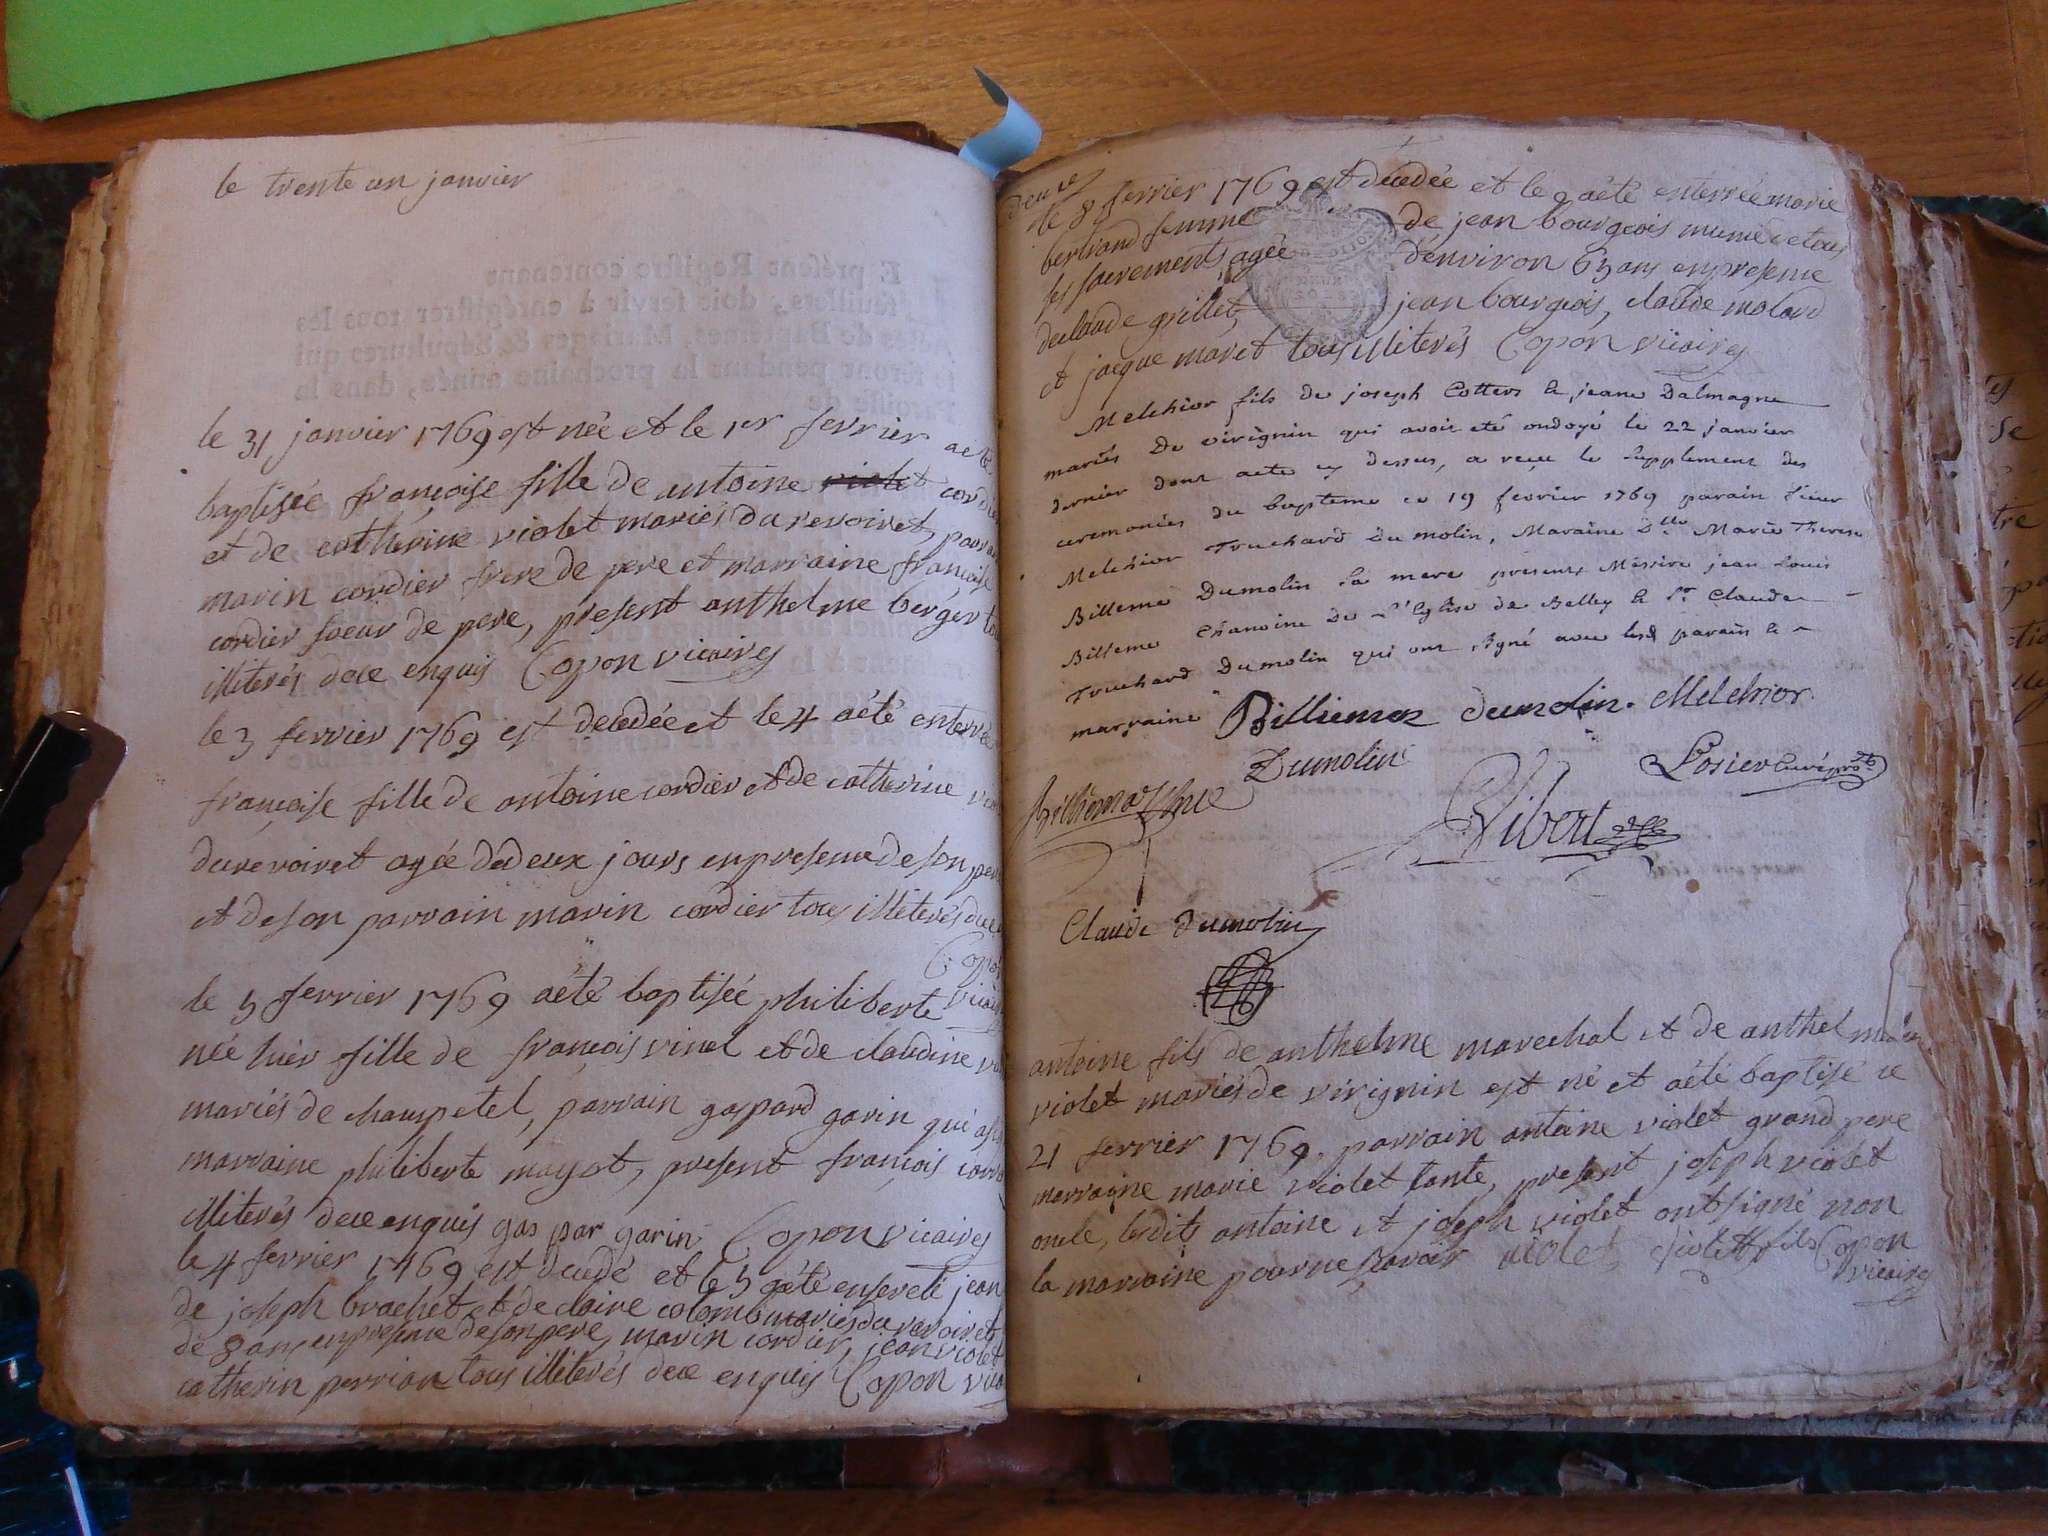 le trente un janvier
le 31 janvier 1769 est née et le 1er fevrier aeté
baptisée françoise fille de antoine violet cordier
et de catherine violet mariés du revoiret, parrain
marin cordier frere de pere et marraine françoise
cordier soeur de pere, present anthelme berger tous
illiterés dece enquis Copon vicaire
le 3 fevrier 1769 est decedée et le 4 aété enterrée
françoise fille de antoine cordier et de catherine
du revoiret agée de deux jours en presence de son pere
et de son parrain marin cordier tous illiterés
Copon
vicaire
le 5 fevrier 1769 aété baptisée philiberte
née hier fille de françois vinel et de claudine
mariés de champetel, parrain gaspard garin qui
marraine philiberte mayot, present françois
illiterés dece enquis gas par garin Copon vicaire
le 4 fevrier 1769 est decedé et le 5 aété enseveli jean
de joseph brachet et de claire colomb mariés du revoiret
de 8 ans en presence de son pere, marin cordier, jean violet
catherin perrion tous illiterés dece enquis Copon
deuxe
le 8 fevrier 1769 est decedée et le 9 aété enterrée marie
bertrand femme de jean bourgeois munie de tous
ses sacrements agée d'environ 65 ans en presence
de claude grillet, jean bourgeois, claude molard
et jacque maret tous illiterés Copon vicaire
Melchior fils de joseph Cotters & jeane Dalmagne
mariés De virignin qui avoit eté ondoyé le 22 janvier
dernier dont acte cy dessus, a reçu le supplement des
ceremonies du bapteme ce 19 fevrier 1769 parain sieur
Melchior Truchard Dumolin, Maraine Dlle Marie Therese
Billeme Dumolin sa mere presents Messire jean Louis
Billeme Chanoine De L'Eglise de Belley & sr Claude
Truchard Dumolin qui ont signé avec lesd parain &
marraine Billiemaz dumolin. Melchior
Dumolin Losier curé
Billiemaz chne
Vibert
Claude Dumolin
antoine fils de anthelme marechal et de anthelmaz
violet mariés de virignin est né et aété baptisé ce
21 fevrier 1769, parrain antoine violet grand pere
marraine marie violet tante, present joseph violet
oncle, lesdits antoine et joseph violet ont signé non
la marraine pour ne scavoir violet violet fils Copon
vicaire